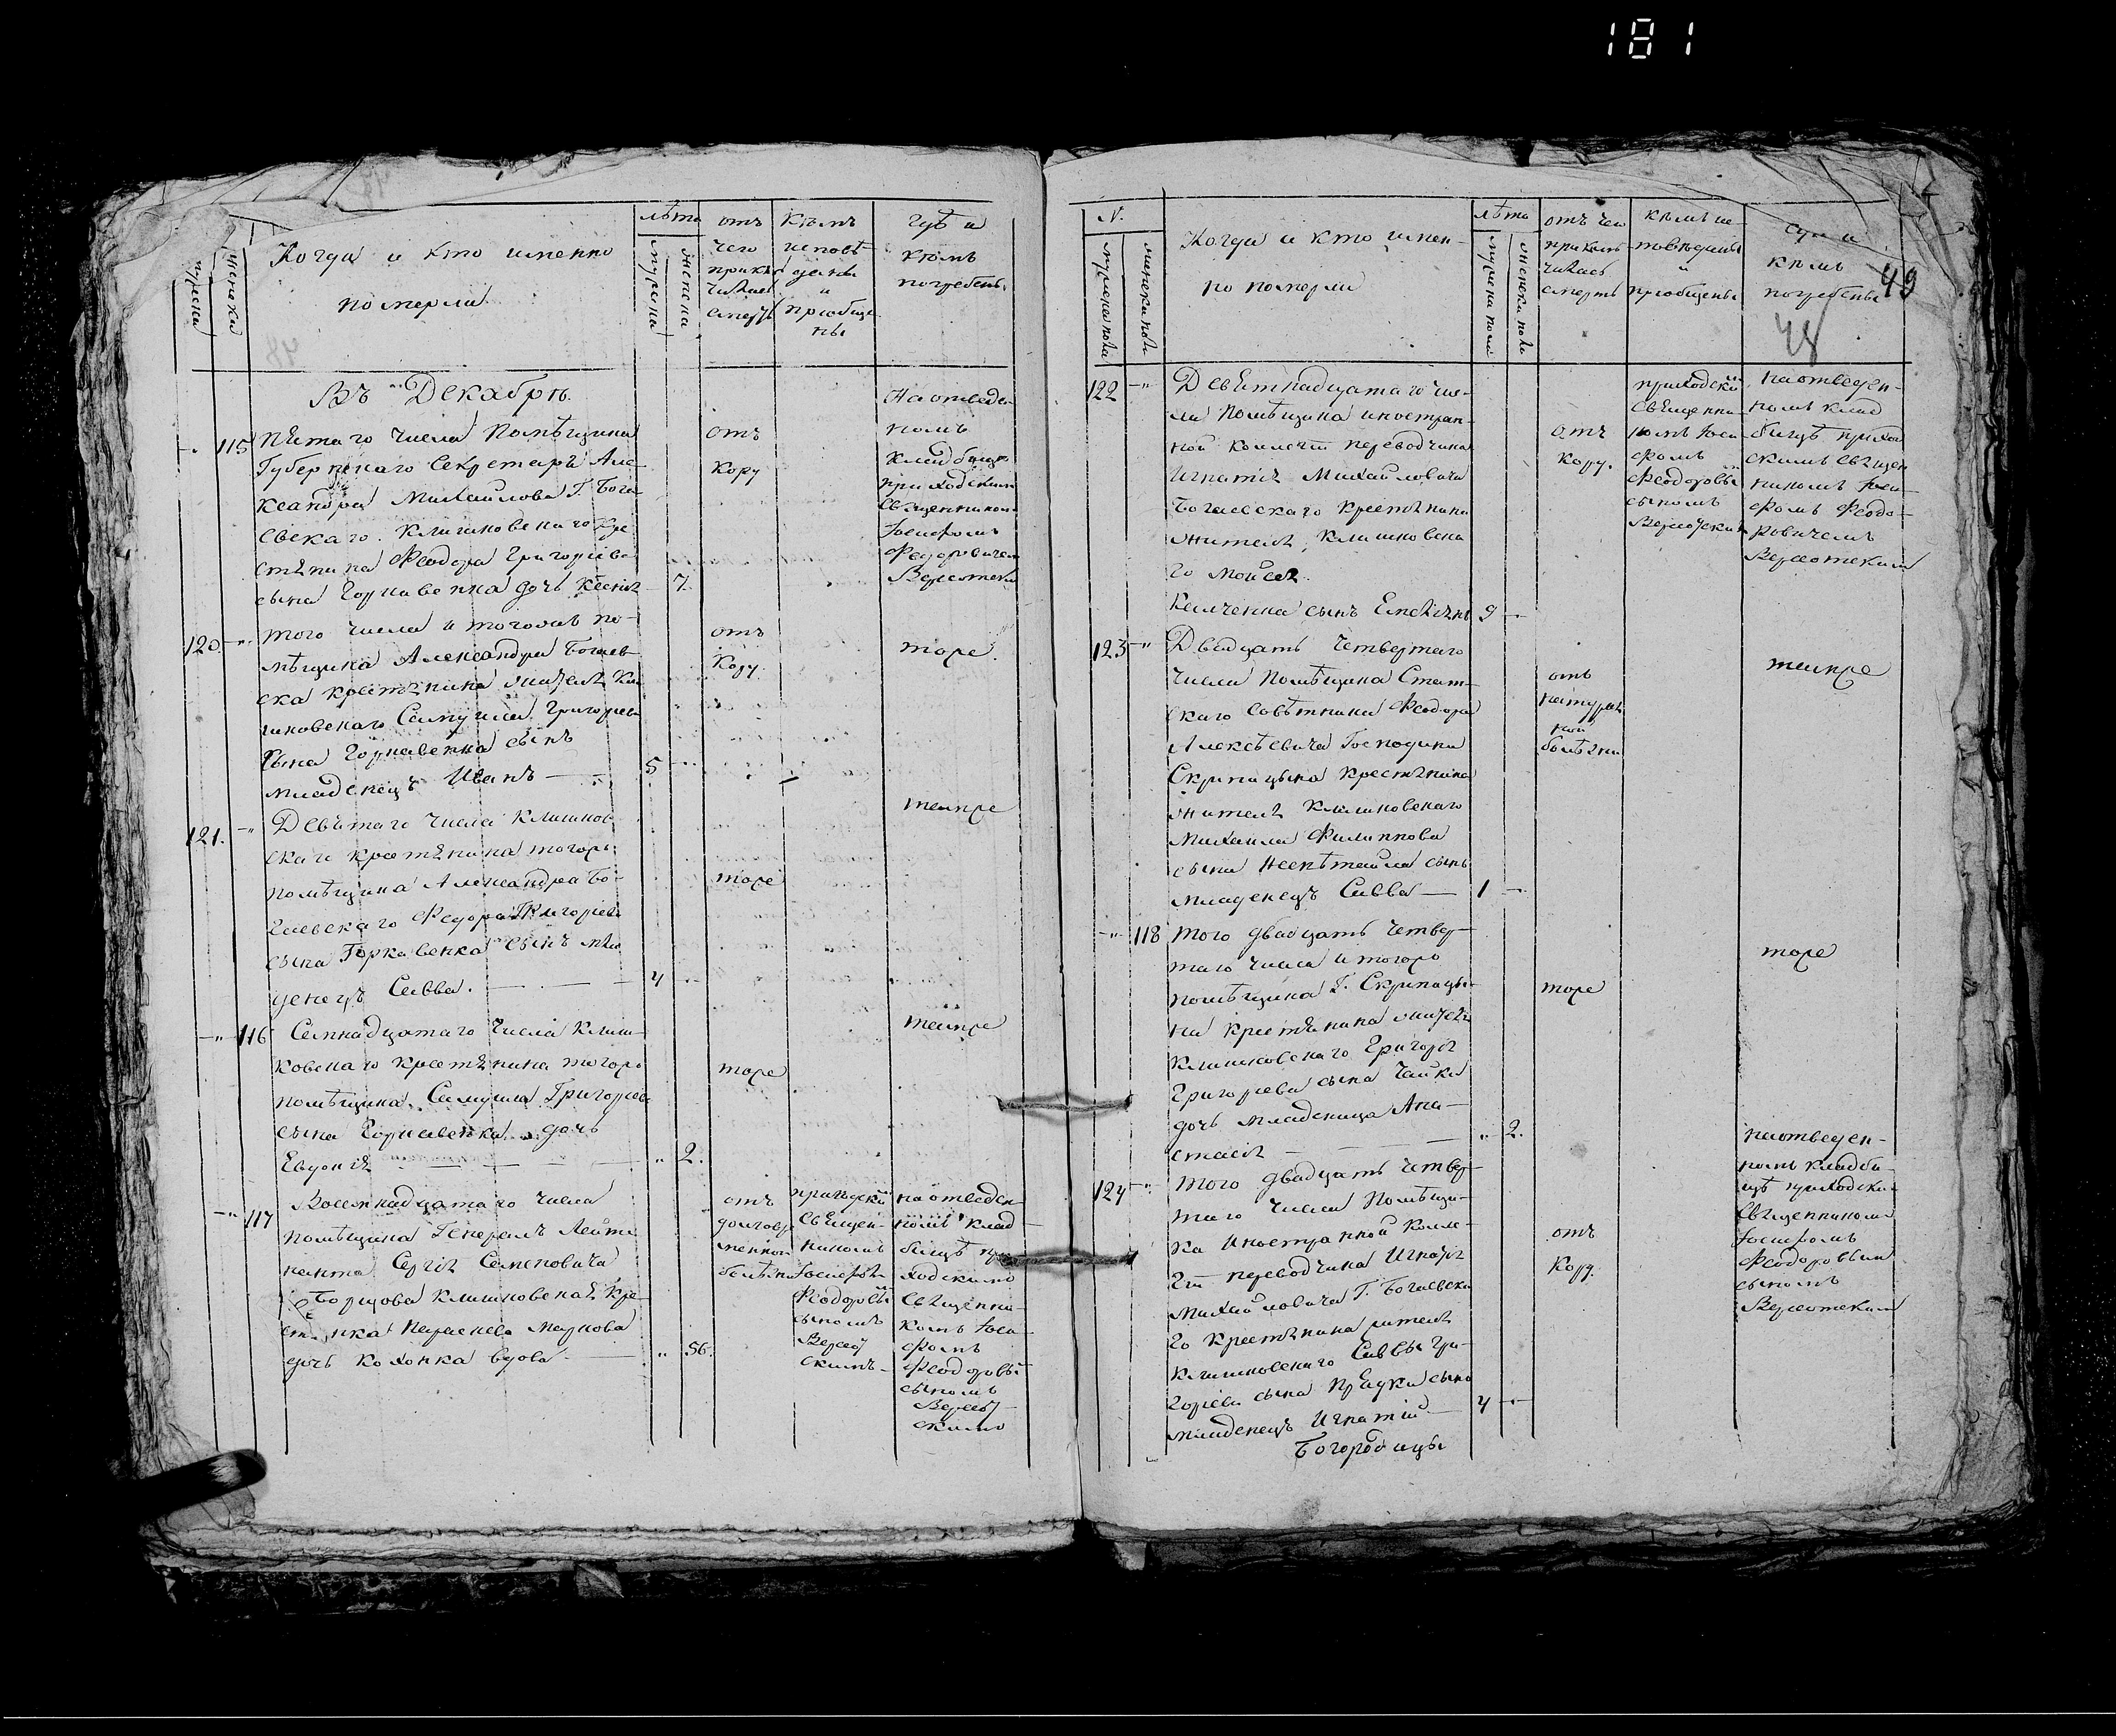 181
Когда и кто именно
померли
лѣта
мужеска
женска
отъ
чего
приклю
чилась
смерть
кѣмъ
исповѣ
даны
и
приобще
ны
гдѣ и
кѣмъ
погребены
Въ Декабрѣ
115
пятаго числа Помѣщика
Губернскаго Секретаря Але-
ксандра Михайлова Г. Бога
евскаго Клишковскаго кре
стянина Феодора Григоріева
сына Горкавенка дочь Ксенія
7
отъ
кору
На отведен
номъ
кладбищѣ
приходскимъ
Священником
Іосифомъ
Федоровичем
120
того числа и тогожъ по-
мѣщика Александра Богаев
ска крестянина жителя Кли
шковскаго Самуила Григорьев
сына Горкавенка сынъ
младенецъ Иванъ
5
отъ
кору
тоже
121
Девятаго числа Клишков
скаго крестянина тогожъ
помѣщика Александра Бо-
гаевскаго Федора Григоріев
сына Горкавенка сынъ мла
денецъ Савва
4
тоже
тамже
116
Семнадцатаго числа Клиш-
ковскаго крестянина тогожъ
помѣщика Самуила Григоріев
сына Горкавенка дочь
Евдокія
2
тоже
тамже
117
Восемнадцатаго числа
помѣщика Генералъ Лейте
нанта Сергія Семеновича
Борщова Клишковская кре
стянка Параскева Маркова
дочь вдова
56
отъ
долговре
менной
болѣзни
приходскій
Священ-
никомъ
Іосифомъ
Феодоровы
сыномъ
на отведен-
номъ клад
бищѣ при
ходскимъ
Священни-
комъ Іоси-
фомъ
Феодоровы
сыномъ
N.
мужеска пола
женска пола
Когда и кто имен-
но померли
лѣта
мужеска пола
женска пола
отъ чего
приклю
чилась
смерть
кѣмъ ис
повѣданы
и
приобщены
гдѣ и
кѣмъ
погребены
49
48
122
Девятнадцатаго чис-
ла Помѣщика иностран-
ной коллегіи переводчика
Игнатія Михайловича
Богаевскаго крестянина
жителя Клишковска
го Моисея
сынъ
9
отъ
кору
приходскій
Священни
комъ Іоси
фомъ
Феодоровы
сыномъ
на отведен-
номъ клад
бищѣ прихо
скимъ Священ
никомъ Іоси-
фомъ Феодо-
ровичемъ
123
Двадцать четвертаго
числа помѣщика Стат-
скаго Совѣтника Феодора
Алексѣевича Господина
Скрипицына крестянина
жителя Клишковскаго
Михаила Филиппова
сына сынъ
младенецъ Савва
1
отъ
натураль
ной
болѣзни
тамже
118
того двадцать четвер-
таго числа и тогожъ
помѣщика Г. Скрипицы-
на крестянина жителя
Клишковскаго Григорія
Григоріева сына Чайки
дочь младеница Ана-
стасія
2
тоже
тоже
124
того двадцать четвер-
таго числа Помѣщи-
ка Иностранной Колле-
гіи переводчика Игнатія
Михайловича Г. Богаевска
го крестянина жителя
Клишковскаго Саввы Гри-
горіева сына Прядки сынъ
младенецъ Игнатій
4
отъ
кору
на отведен-
номъ кладби-
щѣ приходски
Священникомъ
Іосифомъ
Феодоровым
сыномъ
Богородицы